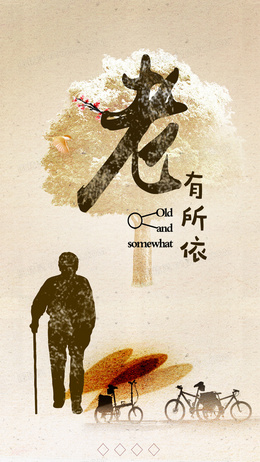 老
有所依
Old
and
somewhat